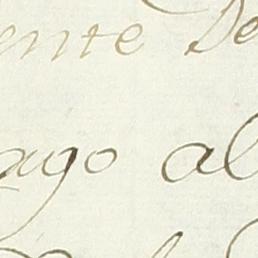 ente De
ago al